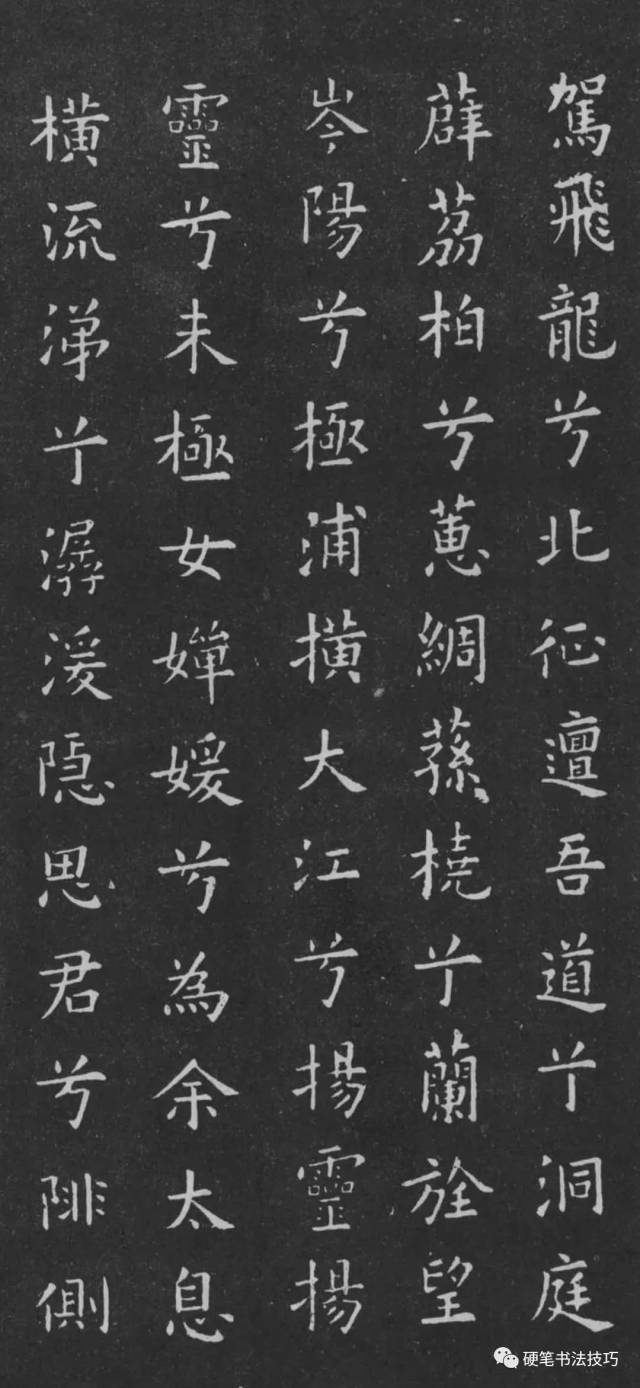 駕飛龍兮北征邅吾道兮洞庭
薜荔柏兮蕙綢蓀橈兮蘭旌望
岑陽兮極浦橫大江兮揚靈揚
靈兮未極女嬋媛兮為余太息
橫流涕兮潺湲隱思君兮陫側
硬笔书法技巧